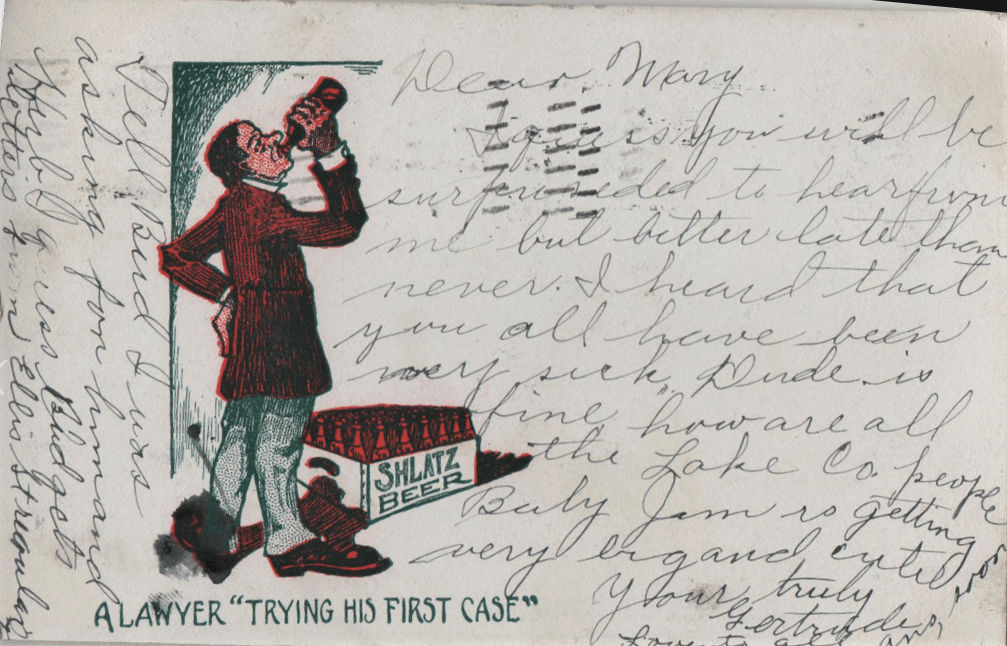 Dear Mary
I guess you will be
surprizeded to hear from
me but better late than
never. I heard that
you all have been
very sick. Dude is
fine how are all
the Lake Co. people
Baby Jim is getting
very big and cute
Your truly
Gertrude
Love to all
Tell Bud I was
asking for him and
Herb I guess Blidgets
letters from Elles
SHLATZ
BEER
A LAWYER "TRYING HIS FIRST CASE"